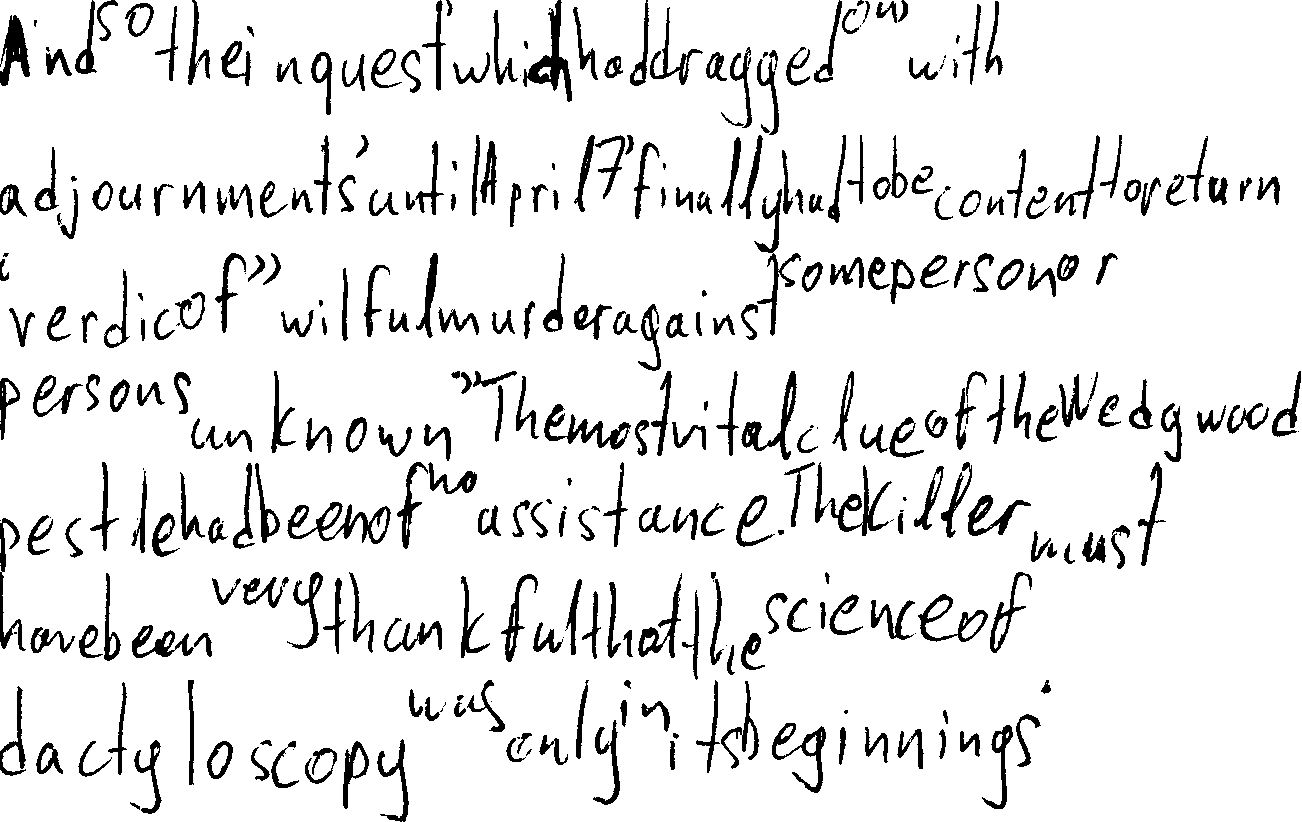 And so the inquest which had dragged on with
adjournments' until April 7' finally had to be content to return
'verdic of" wilful murder against some person or
persons unknown " The most vital clue of the Wedgwood
pestle had been of no assistance. The killer must
have been very thankful that the science of
dactyloscopy was only in its beginnings.